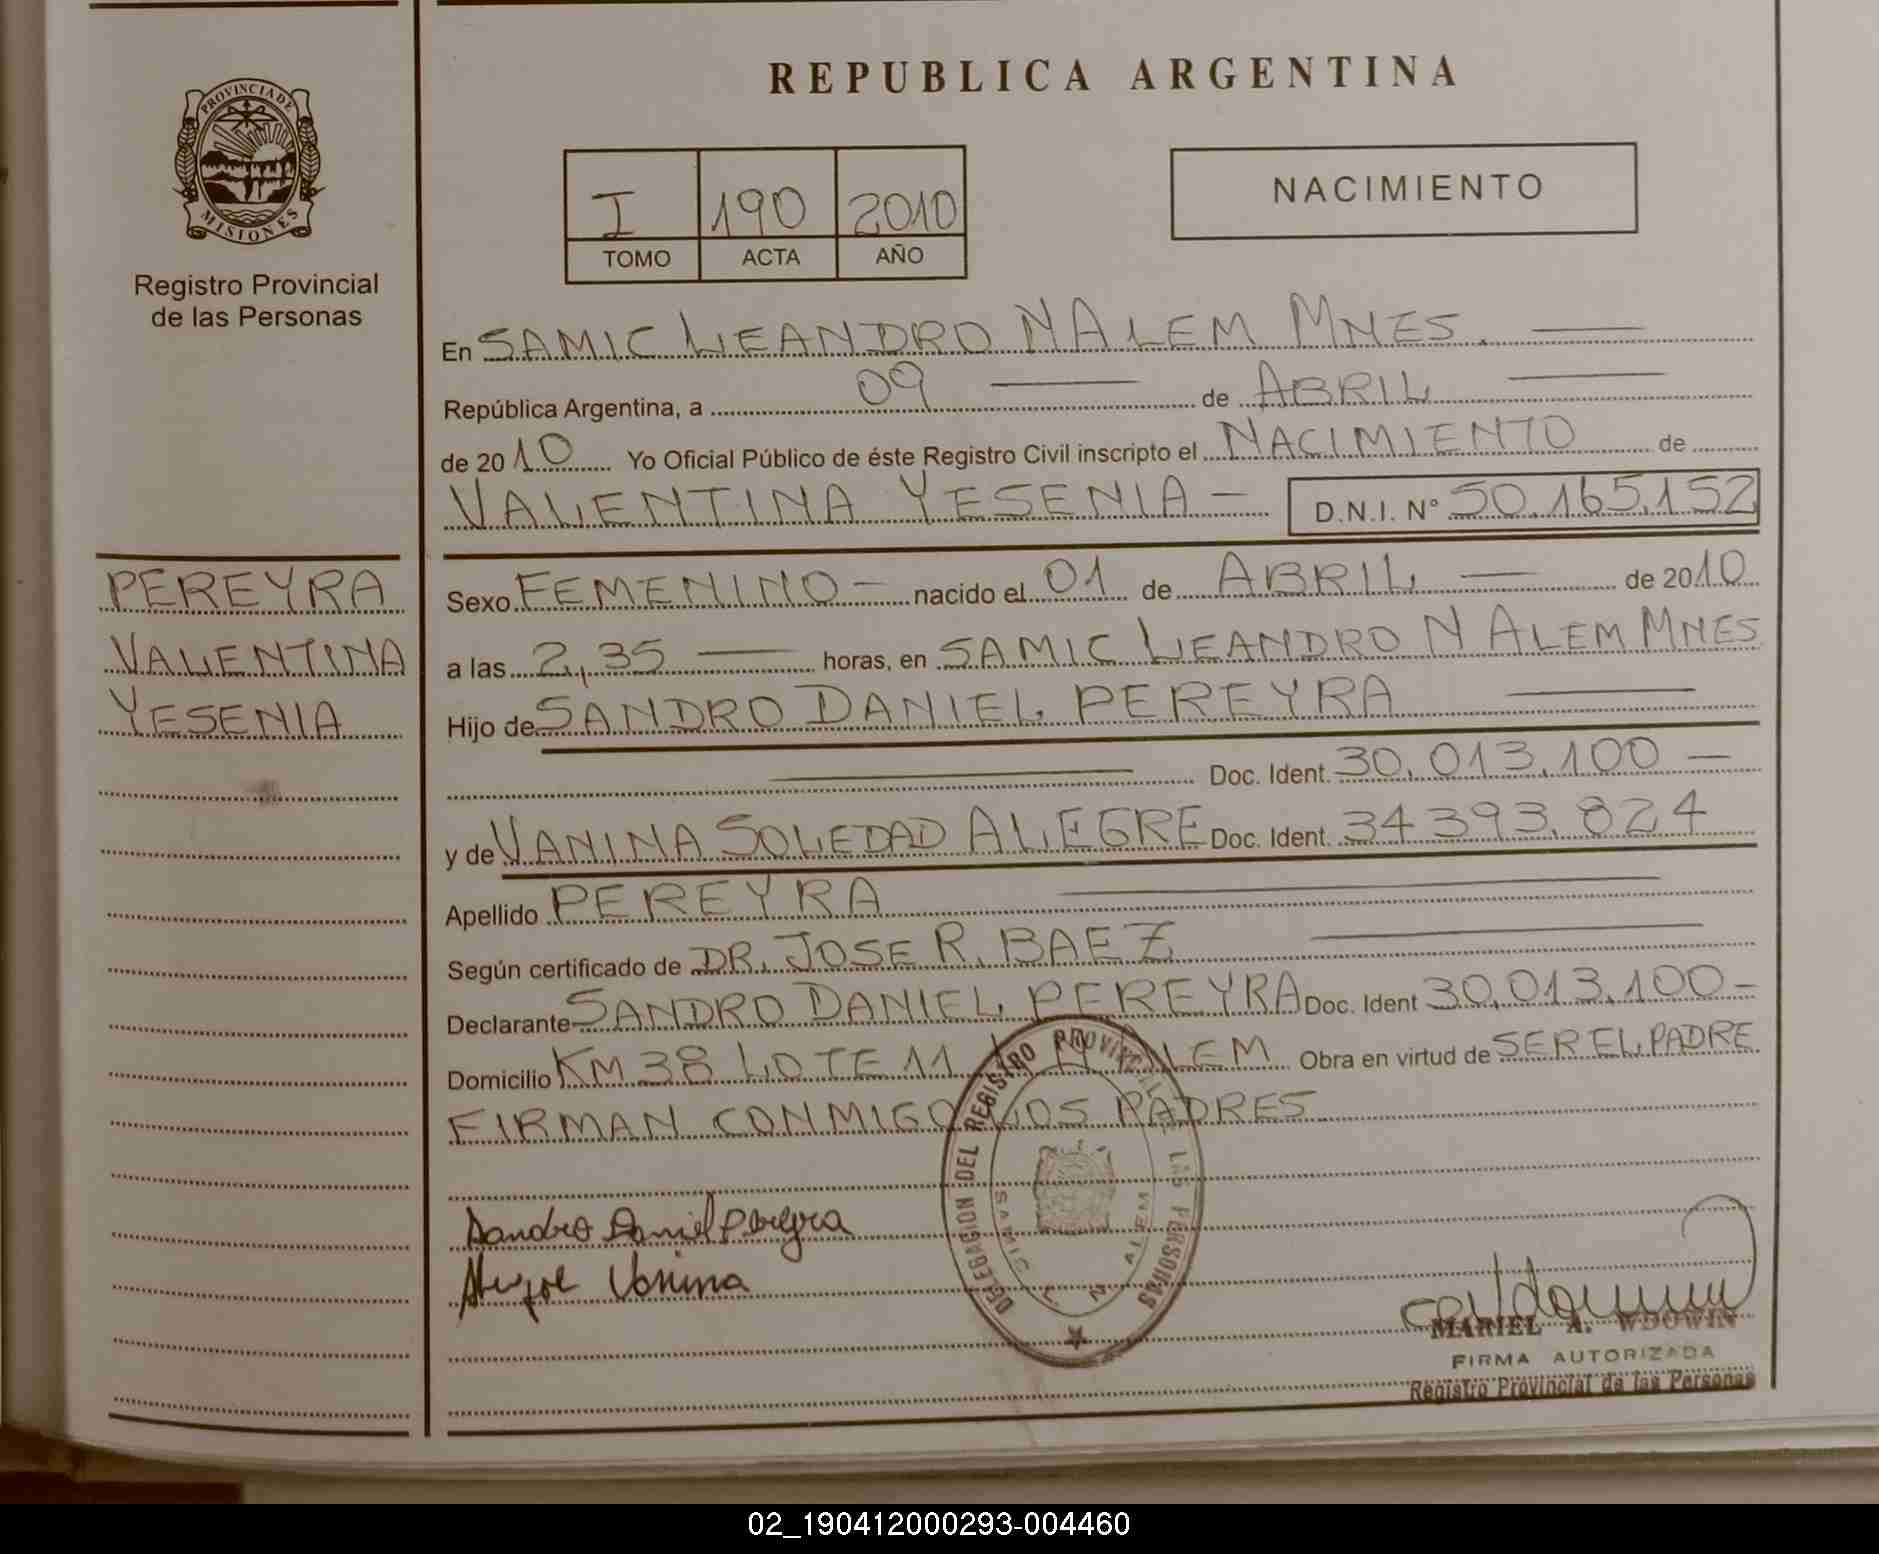 REPUBLICA ARGENTINA
PROVINCIA DE
MISIONES
Registro Provincial
de las Personas
I 190 2010
TOMO ACTA AÑO
NACIMIENTO
En SAMIC LEANDRO N ALEM MNES.
República Argentina, a 09 de ABRIL
de 2010 Yo Oficial Público de éste Registro Civil inscripto el NACIMIENTO de
VALENTINA YESENIA - D.N.I. N° 50.165.152
PEREYRA
VALENTINA
YESENIA
Sexo FEMENINO - nacido el 01 de ABRIL de 2010
a las 2,35 horas, en SAMIC LEANDRO N ALEM MNES
Hijo de SANDRO DANIEL PEREYRA
Doc. Ident. 30.013.100 -
y de VANINA SOLEDAD ALEGRE Doc. Ident. 34 393.824
Apellido PEREYRA
Según certificado de DR. JOSE R. BAEZ
Declarante SANDRO DANIEL PEREYRA Doc. Ident 30.013.100 -
Domicilio KM 38 LOTE 11 L N ALEM Obra en virtud de SER EL PADRE
FIRMAN CONMIGO LOS PADRES
DELEGACION DEL REGISTRO PROVINCIAL DE LAS PERSONAS
SAMIC L. N. ALEM
Sandro Daniel Pereyra
Alegre Vanina
MARIEL A. WDOWIN
FIRMA AUTORIZADA
Registro Provincial de las Personas
02_190412000293-004460